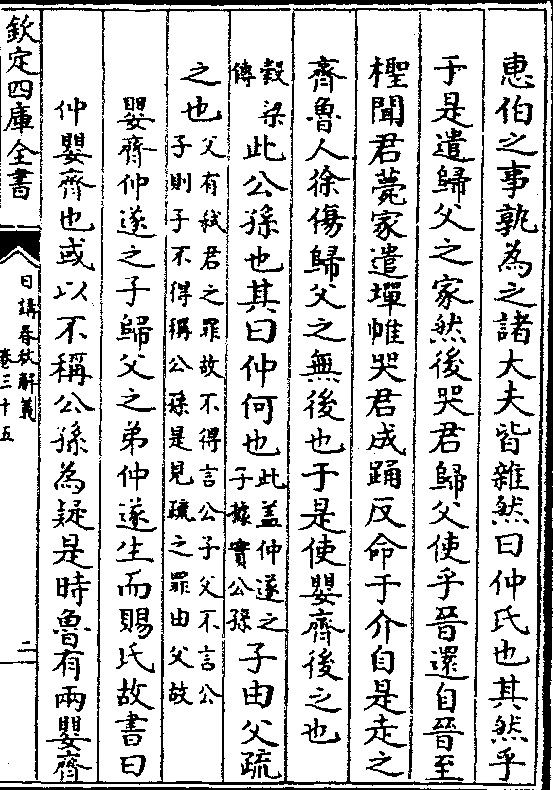 惠伯之事孰為之諸大夫皆雜然曰仲氏也其然乎
于是遣歸父之家然後哭君歸父使乎晉還自晉至
檉聞君薨家遣墠帷哭君成踊反命于介自是走之
齊魯人徐傷歸父之無後也于是使嬰齊後之也
穀梁傳此公孫也其曰仲何也此蓋仲遂之子據實公孫子由父疏
之也父有弒君之罪故不得言公子父不言公子則子不得稱公孫是見疏之罪由父故
嬰齊仲遂之子歸父之弟仲遂生而賜氏故書曰
仲嬰齊也或以不稱公孫為疑是時魯有兩嬰齊
欽定四庫全書
日講春秋解義
卷三十五
二